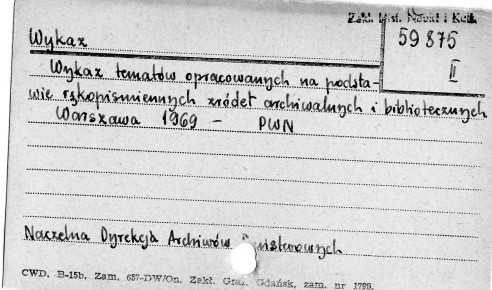 Zakł. Hist. Nauki i Tech.
59 875
II
Wykaz
Wykaz tematów opracowanych na podsta-
wie rękopiśmiennych źródeł archiwalnych i bibliotecznych
Warszawa 1969 - PWN
Naczelna Dyrekcja Archiwów Państwowych
CWD. B-15b. Zam. 657-DW/On. Zakł. Graf. Gdańsk, zam. nr 1795.